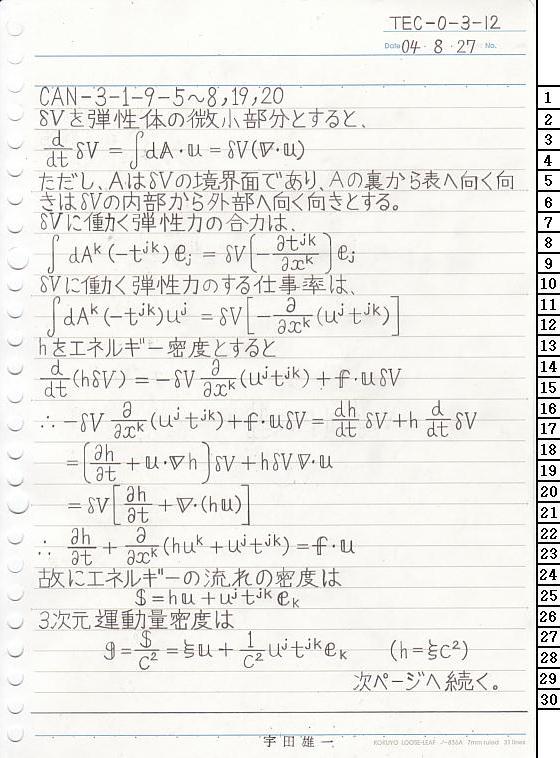 TEC-0-3-12
Date 04・8・27 No.
CAN-3-1-9-5～8,19,20
δVを弾性体の微小部分とすると、
d/dt δV = ∫d𝔸・𝕦 = δV(∇・𝕦)
ただし、AはδVの境界面であり、Aの裏から表へ向く向
きはδVの内部から外部へ向く向きとする。
δVに働く弾性力の合力は、
∫dAᵏ(-tʲᵏ)𝕖ⱼ = δV(-∂tʲᵏ/∂xᵏ)𝕖ⱼ
δVに働く弾性力のする仕事率は、
∫dAᵏ(-tʲᵏ)uʲ = δV[-∂/∂xᵏ(uʲtʲᵏ)]
hをエネルギー密度とすると
d/dt(hδV) = -δV ∂/∂xᵏ(uʲtʲᵏ) + 𝕗・𝕦δV
∴ -δV ∂/∂xᵏ(uʲtʲᵏ) + 𝕗・𝕦δV = dh/dt δV + h d/dt δV
= (∂h/∂t + 𝕦・∇h)δV + hδV∇・𝕦
= δV[∂h/∂t + ∇・(h𝕦)]
∴ ∂h/∂t + ∂/∂xᵏ(huᵏ + uʲtʲᵏ) = 𝕗・𝕦
故にエネルギーの流れの密度は
𝕊 = h𝕦 + uʲtʲᵏ𝕖ₖ
3次元運動量密度は
𝕘 = 𝕊/c² = ξ𝕦 + 1/c² uʲtʲᵏ𝕖ₖ (h=ξc²)
次ページへ続く。
宇田雄一
KOKUYO LOOSE-LEAF ノ-836A 7mm ruled 31 lines
1
2
3
4
5
6
7
8
9
10
11
12
13
14
15
16
17
18
19
20
21
22
23
24
25
26
27
28
29
30